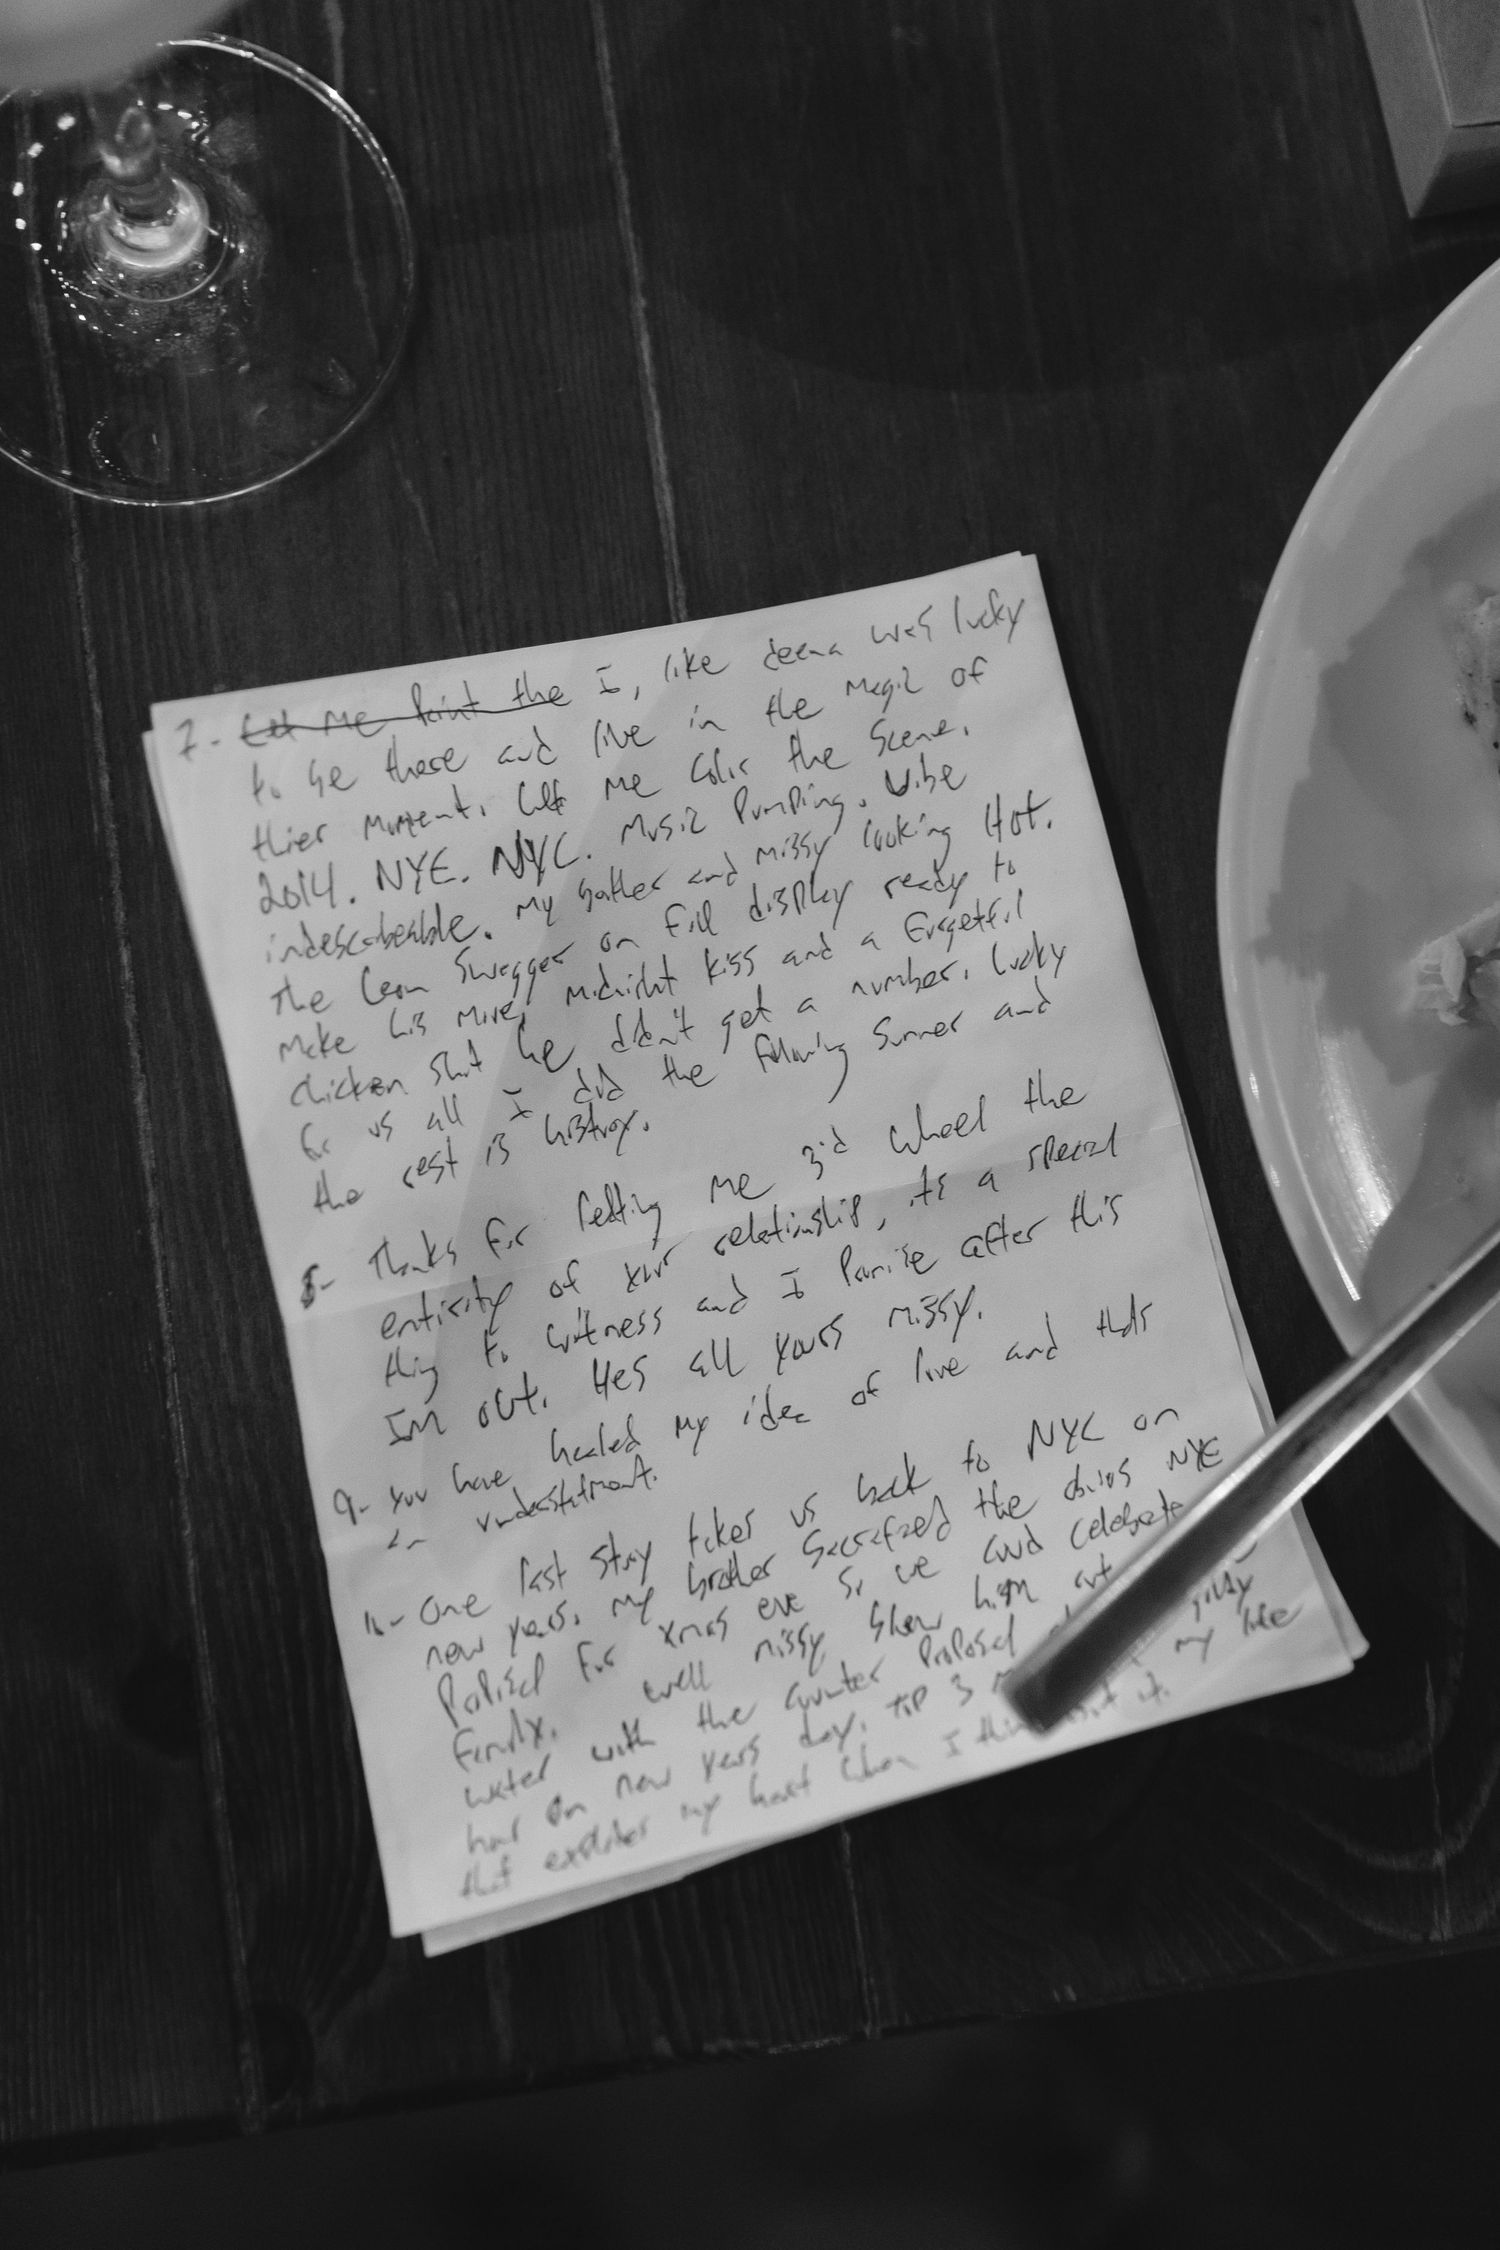 7- Let me Paint the I, like deena was lucky
to be there and live in the magic of
thier moment. Let me color the scene.
2014. NYE. NYC. Music Pumping. Vibe
indescribeable. my brother and missy looking Hot.
The Leon Swagger on full display ready to
make his move, midnight kiss and a forgetful
chicken shit he didn't get a number. lucky
for us all I did the following summer and
the rest is history.
8- Thanks for letting me 3rd wheel the
entirity of your relationship, its a special
thing to witness and I Promise after this
Im out. Hes all yours missy.
9- you have healed my idea of love and thats
an understatment.
10- One last story takes us back to NYC on
new years. my brother sacrafized the obvious NYE
Proposal for xmas eve so we could celebrate
family. well missy blew him out
water with the counter Proposal
her on new years day. TOP 3 my life
that explodes my heart when I think about it.